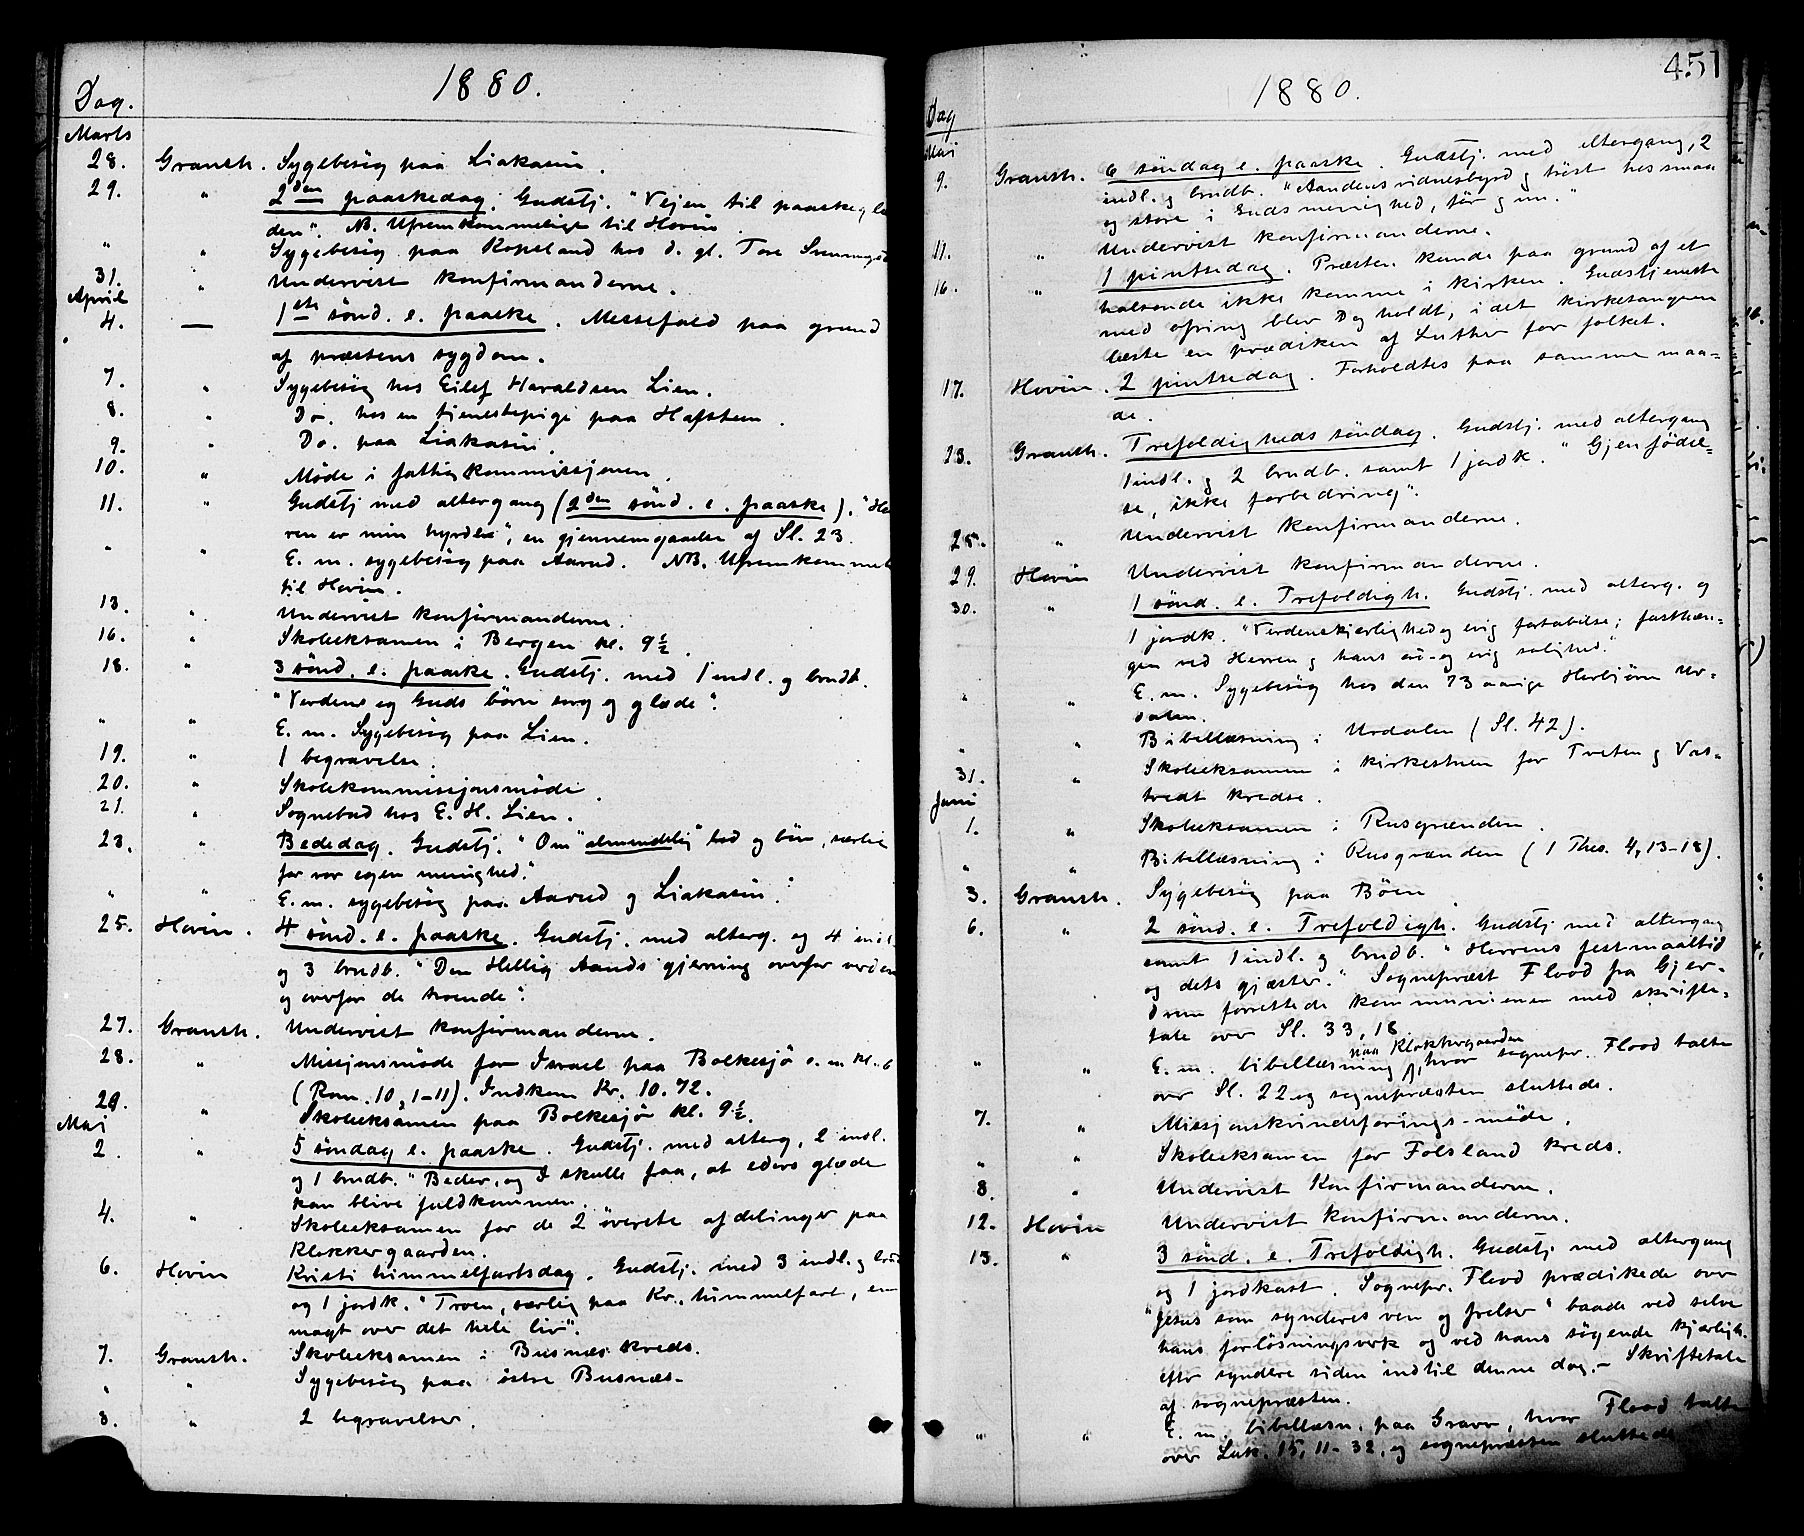 1880.
Dag.
Marts
28. Gransh. Sygebesøg paa Liakasin.
29. " 2den paaskedag. Gudstj. "Vejen til paaskeglæ
den". NB. Ufremkommeligt til Hovin.
" " Sygebesøg paa Kopsland hos d. gl. Tore
31. " Undervist konfirmanderne.
April
4. — 1ste sønd. e. paaske. Messefald paa grund
af præstens sygdom.
7. " Sygebesøg hos Eilef Haraldsen Lien.
8. " Do. hos en tjenestepige paa Hafsten.
9. " Do. paa Liakasin.
10. " Møde i fattigkommissjonen.
11. " Gudstj med altergang (2den sønd. e. paaske). "Her
ren er min hyrde", en gjennemgaaelse af Sl. 23.
" " E. m. sygebesøg paa Aarud. NB. Ufremkommel
til Hovin.
13. " Undervist konfirmanderne.
16. " Skoleeksamen i Bergen kl. 9½.
18. " 3 sønd. e. paaske. Gudstj. med 1 indl. g brudb.
"Verdens og Guds børns sorg og glæde".
" " E. m. Sygebesøg paa Lien.
19. " 1 begravelse.
20. " Skolekommissjonsmøde.
21. " Sognebud hos E. H. Lien.
23. " Bededag. Gudstj. "Om "almindelig" bod og bøn, særlig
for vor egen menighed."
" " E. m. sygebesøg paa Aarud g Liakasin.
25. Hovin. 4 sønd. e. paaske. Gudstj. med alterg. og 4 indl.
og 3 brudb. "Den Hellig Aands gjerning overfor verden
og overfor de troende".
27. Gransh. Undervist konfirmanderne.
28. " Missjonsmøde for Israel paa Bolkesjø e. m. kl. 6
(Rom. 10, 1-11). Indkom Kr. 10.72.
29. " Skoleeksamen paa Bolkesjø kl. 9½.
Mai
2. " 5 søndag e. paaske. Gudstj. med alterg, 2 indl.
og 1 brudb. "Beder, og I skulle faa, at eders glæde
kan blive fuldkommen.
4. " Skoleeksamen for de 2 øverste afdelinger paa
Klokkergaarden.
6. Hovin Kristi himmelfartsdag. Gudstj. med 3 indl. g brud
og 1 jordk. "Troen, særlig paa Kr. himmelfart, en
magt over det hele liv".
7. Gransh. Skoleeksamen i Busnæs kreds.
" " Sygebesøg paa østre Busnæs.
8. " 2 begravelser.
451
1880.
Dag
Mai
9. Gransh. 6 søndag e. paaske. Gudstj. med altergang, 2
indl. g brudb. "Aandens vidnesbyrd g trøst hos smaa
og store i Guds menighed, før g nu."
11. " Undervist konfirmanderne.
16. " 1 pintsedag. Præsten kunde paa grund af et
halsonde ikke komme i kirken. Gudstjeneste
med ofring blev dog holdt, i det kirkesangeren
læste en prædiken af Luther for folket.
17. Hovin. 2 pintsedag. Forholdtes paa samme maa-
de.
23. Gransh. Trefoldigheds søndag. Gudstj. med altergang
1 indl. g 2 brudb. samt 1 jordk. "Gjenfødel-
se, ikke forbedring".
25. " Undervist konfirmanderne.
29. Hovin Undervist konfirmanderne.
30. " 1 sønd. e. Trefoldigh. Gudstj. med alterg. og
1 jordk. "Verdenskjærlighed og evig fortabelse; fasthæn-
gen ved Herren g hans nu- og evig salighed."
" " E. m. Sygebesøg hos den 73 aarige Herbjørn Ur-
dalen.
" " Bibellæsning i Urdalen (Sl. 42).
31. " Skoleeksamen i kirkestuen for Tveten g Vas-
tredt kredse.
Juni
1. " Skoleeksamen i Rusgrænden.
" " Bibellæsning i Rusgrænden (1 Thes. 4, 13-18).
3. Gransh. Sygebesøg paa Bøen.
6. " 2 sønd. e. Trefoldigh. Gudstj med altergang
samt 1 indl. g brudb. "Herrens festmaaltid
og dets gjæster." Sognepræst Flood fra Gjer-
drum forrettede kommunionen med skrifte-
tale over Sl. 33, 18.
" " E. m. bibellæsning paa Klokkergaarden, hvor sognepr. Flood talte
over Sl. 22 og sognepræsten sluttede.
7. " Missjonskvindeforings-møde.
" " Skoleeksamen for Følsland kreds.
8. " Undervist Konfirmanderne.
12. Hovin Undervist konfirmanderne.
13. " 3 sønd. e. Trefoldigh. Gudstj med altergang
og 1 jordkast. Sognepr. Flood prædikede over
"Jesus som synderes ven og frelser" baade ved selve
hans forløsningsverk og ved hans søgende kjærligh.
efter syndere siden indtil denne dag. — Skriftetale
af sognepræsten.
" " E. m. bibellæsn. paa Gravr, hvor Flood talte
over Luk. 15, 11-32. og sognepræsten sluttede